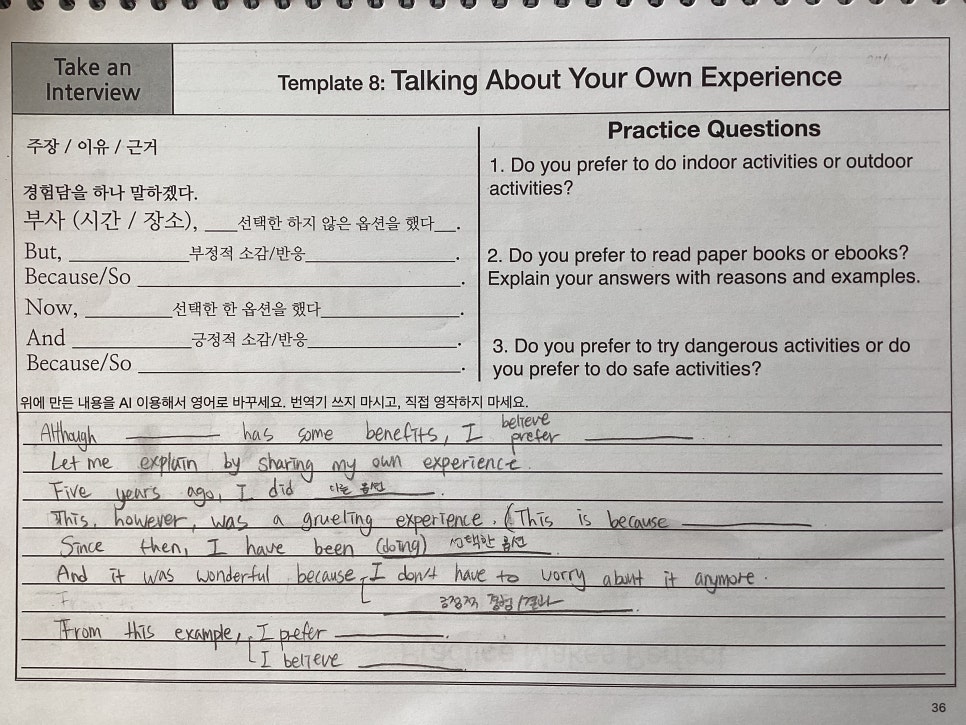 Take an
Interview
Template 8: Talking About Your Own Experience
주장 / 이유 / 근거
경험담을 하나 말하겠다.
부사 (시간 / 장소), ____선택한 하지 않은 옵션을 했다___.
But, ____________부정적 소감/반응____________.
Because/So ____________.
Now, _________선택한 한 옵션을 했다____________.
And ____________긍정적 소감/반응____________.
Because/So ____________.
Practice Questions
1. Do you prefer to do indoor activities or outdoor
activities?
2. Do you prefer to read paper books or ebooks?
Explain your answers with reasons and examples.
3. Do you prefer to try dangerous activities or do
you prefer to do safe activities?
위에 만든 내용을 AI 이용해서 영어로 바꾸세요. 번역기 쓰지 마시고, 직접 영작하지 마세요.
believe
Although ________ has some benefits, I prefer ________.
Let me explain by sharing my own experience.
Five years ago, I did 다른 옵션.
This, however, was a grueling experience. (This is because ________
Since then, I have been (doing) 선택한 옵션
And it was wonderful because I don't have to worry about it anymore.
I
긍정적 경험/결과.
From this example, I prefer ________.
I believe ________
36